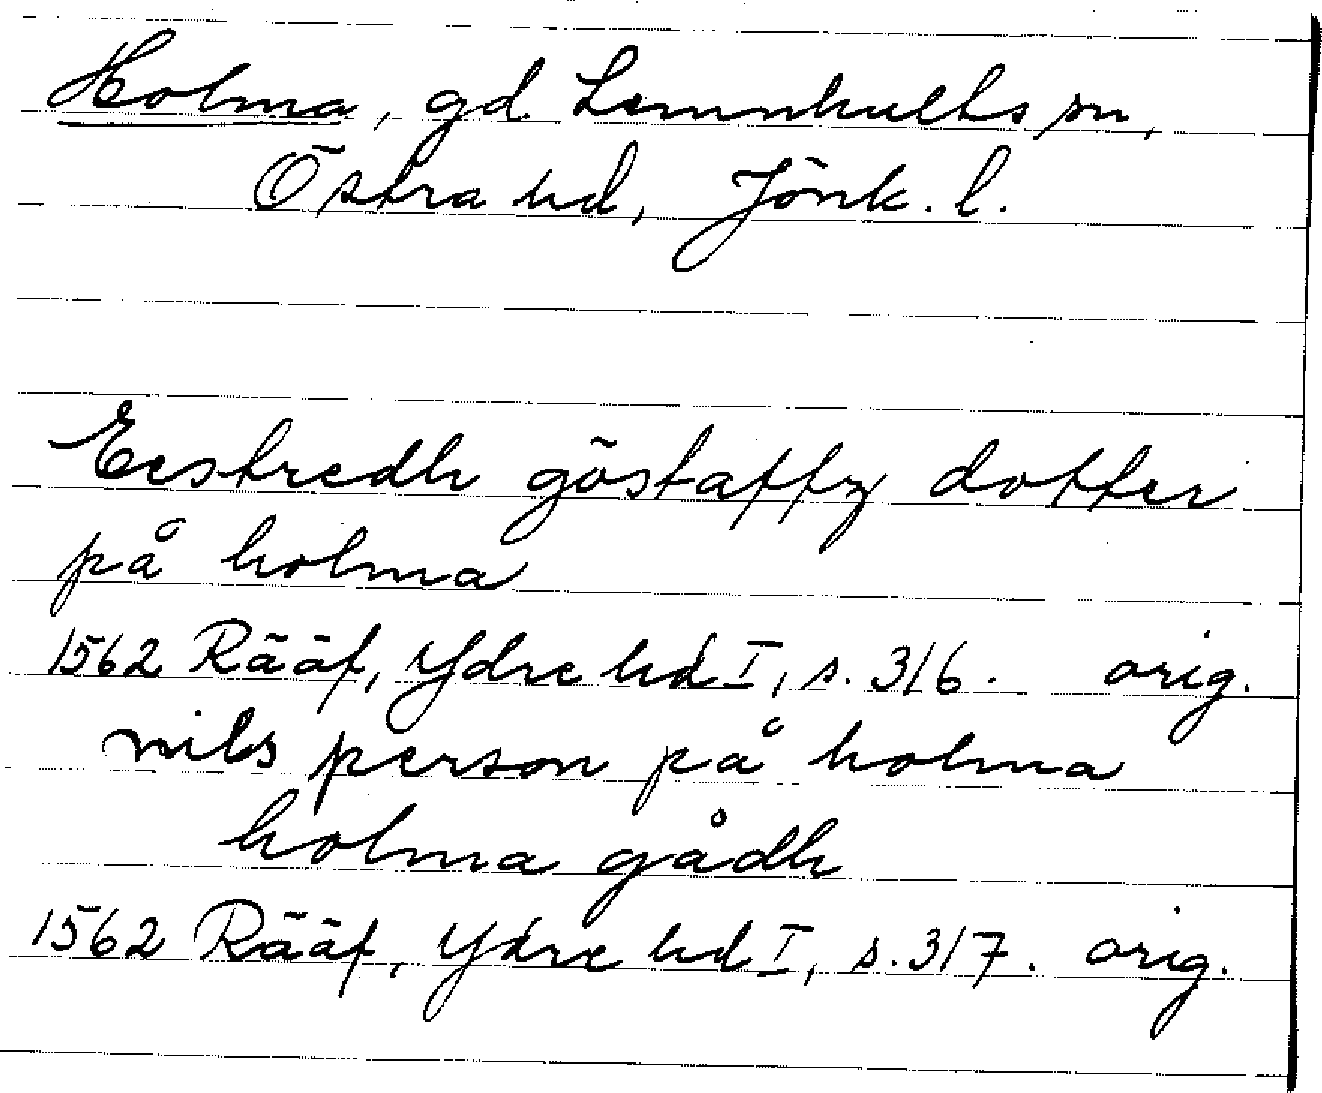 Holma, gd. Lemnhults sn,
Östra hd, Jönk. l.
Eestredh göstaffz dotter
på holma
1562 Rääf, Ydre hd I, s. 316. orig.
nils person på holma
holma gådh
1562 Rääf, Ydre hd I, s. 317. orig.